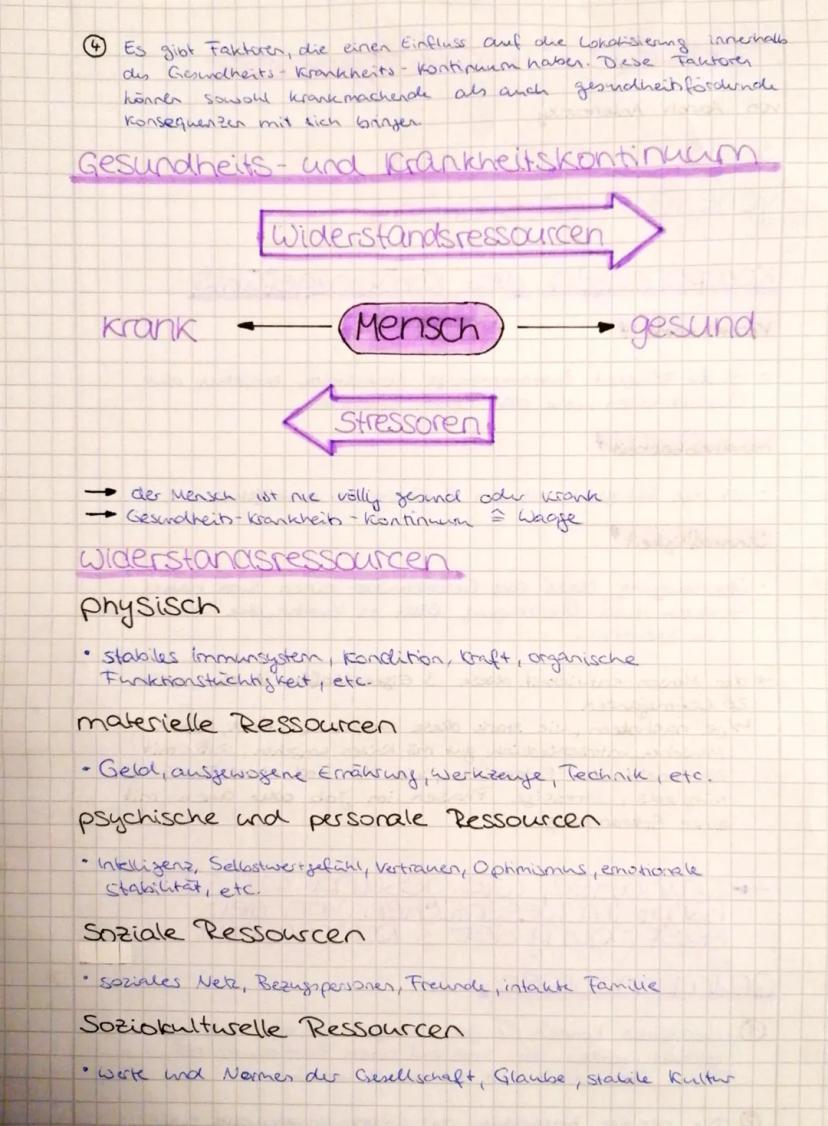 ④ Es gibt Faktoren, die einen Einfluss auf die Lokalisierung innerhalb
des Gesundheits-Krankheits-Kontinuum haben. Diese Faktoren
können sowohl krankmachende als auch gesundheitsfördernde
Konsequenzen mit sich bringen
Gesundheits- und Krankheitskontinuum
Widerstandsressourcen
krank ← Mensch → gesund
Stressoren
→ der Mensch ist nie völlig gesund oder krank
→ Gesundheits-Krankheits-Kontinuum ≙ Waage
Widerstandsressourcen
physisch
• stabiles Immunsystem, Kondition, Kraft, organische
Funktionstüchtigkeit, etc.
materielle Ressourcen
• Geld, ausgewogene Ernährung, Werkzeuge, Technik, etc.
psychische und personale Ressourcen
• Intelligenz, Selbstwertgefühl, Vertrauen, Optimismus, emotionale
Stabilität, etc.
Soziale Ressourcen
• soziales Netz, Bezugspersonen, Freunde, intakte Familie
Soziokulturelle Ressourcen
• Werte und Normen der Gesellschaft, Glaube, stabile Kultur